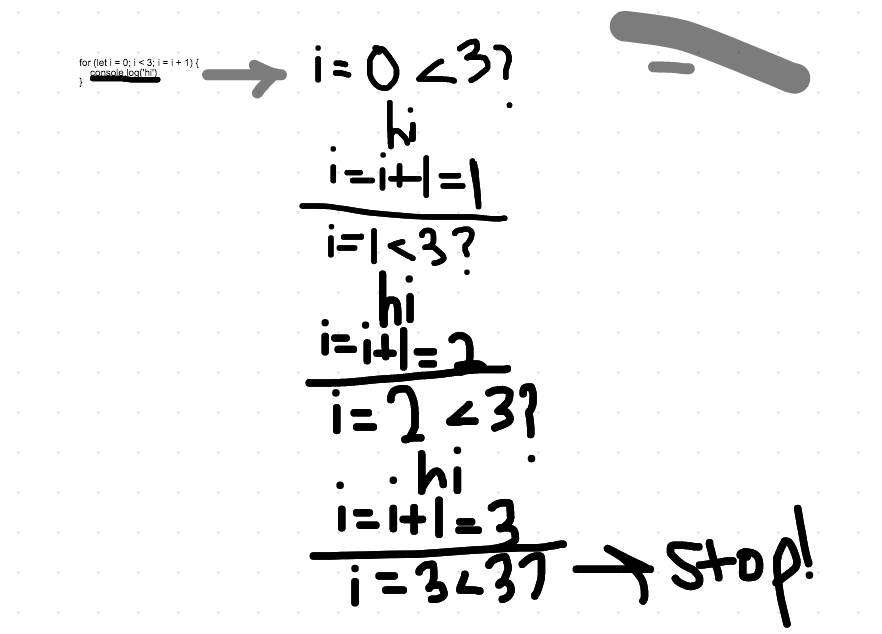 for (let i = 0; i < 3; i = i + 1) {
console.log('hi')
}
i = 0 < 3?
hi
i = i + 1 = 1
i = 1 < 3?
hi
i = i + 1 = 2
i = 2 < 3?
hi
i = i + 1 = 3
i = 3 < 3? → stop!